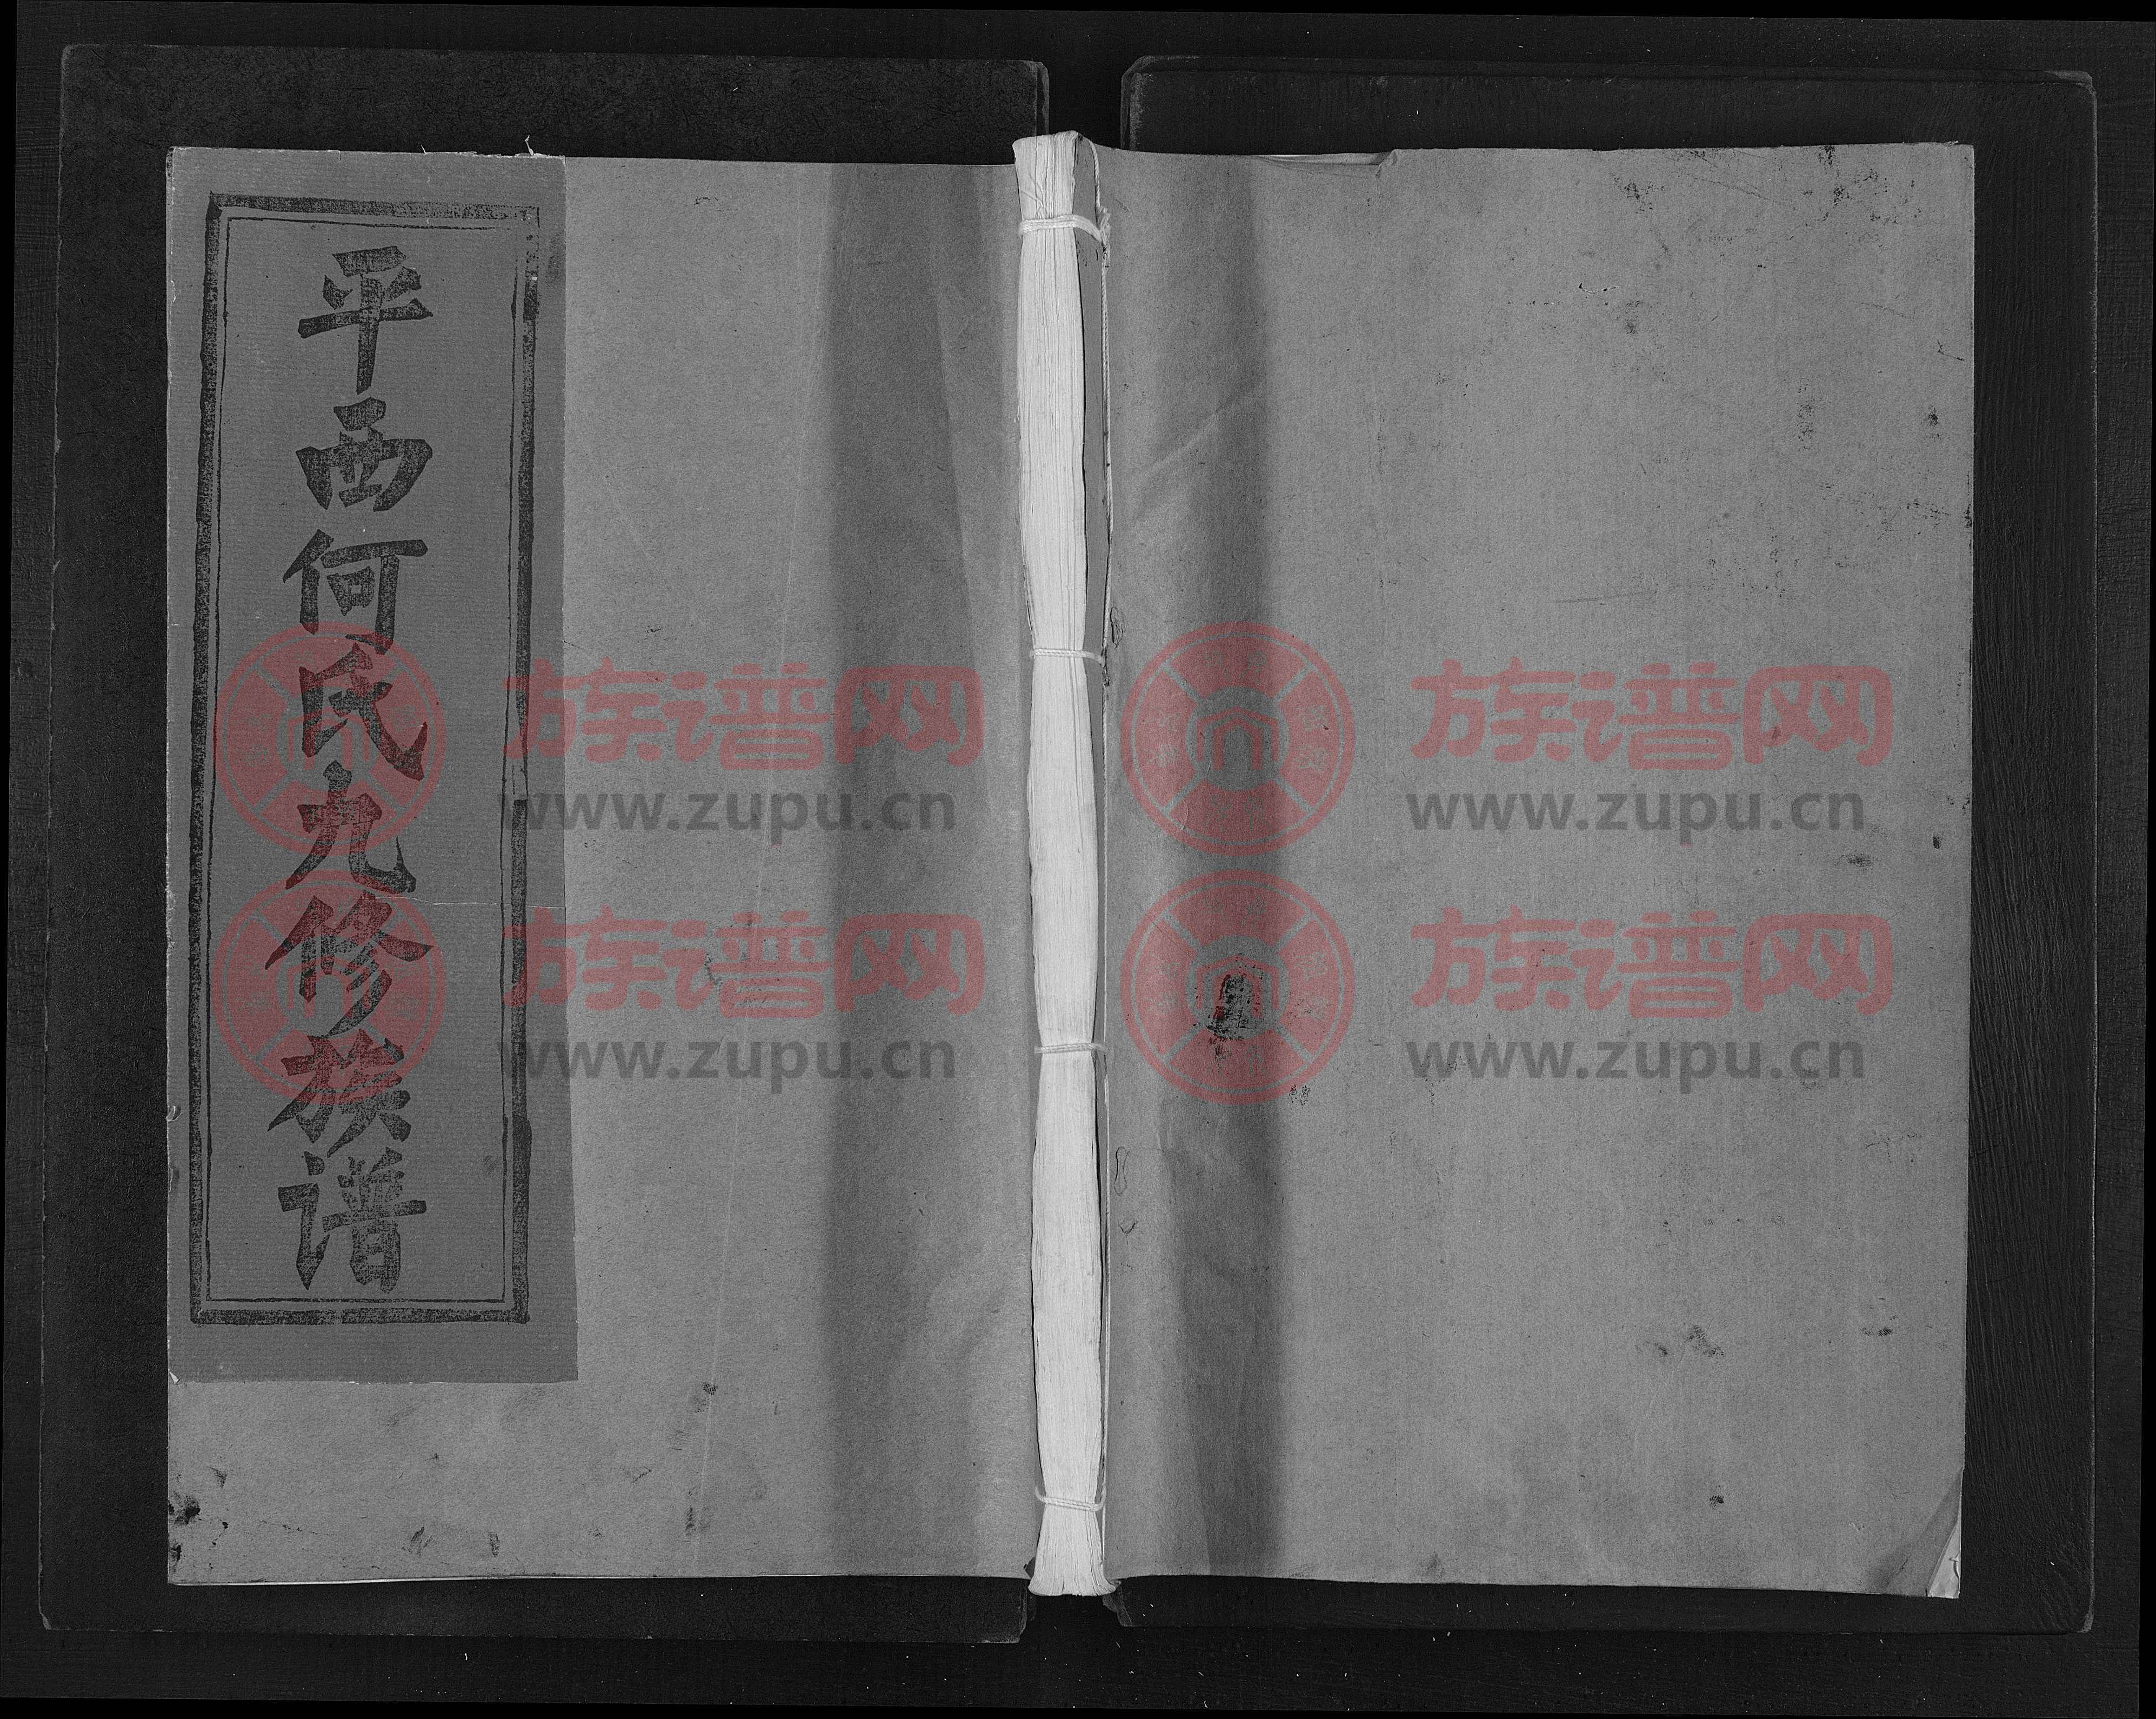 平西何氏九修族谱
族谱网
www.zupu.cn
族谱网
www.zupu.cn
族谱网
www.zupu.cn
族谱网
www.zupu.cn